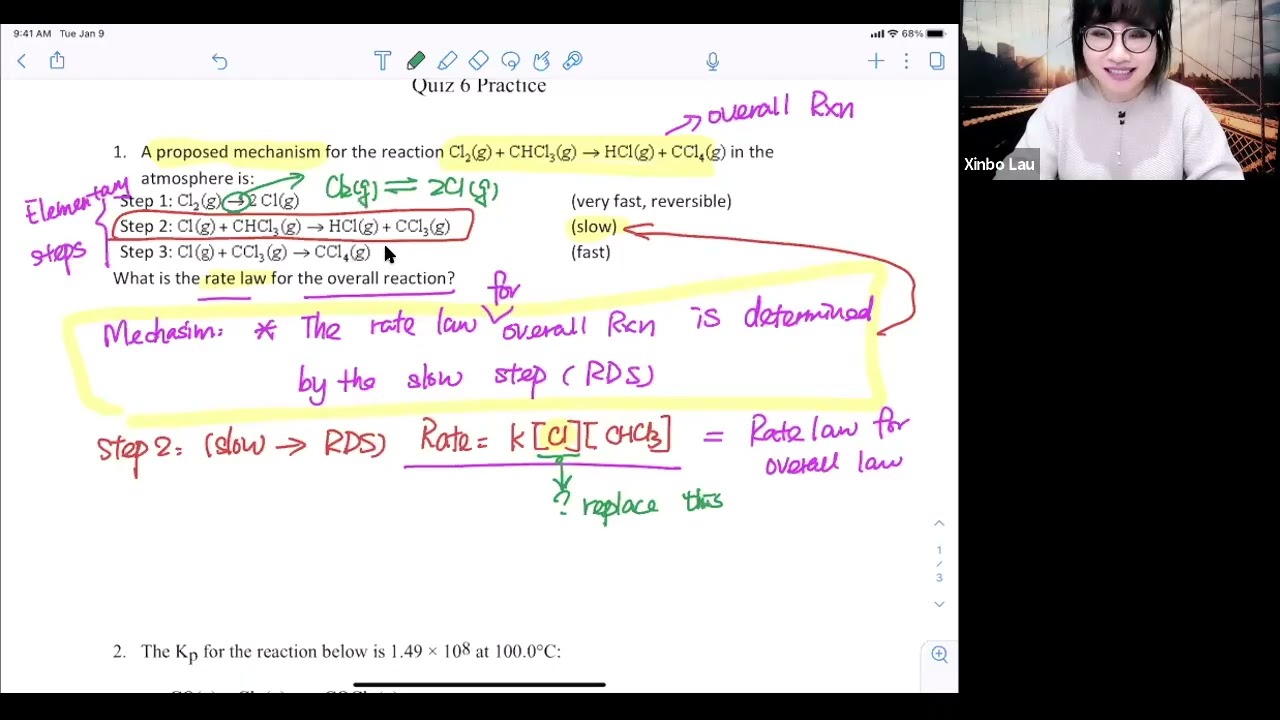 9:41 AM Tue Jan 9
68%
Quiz 6 Practice
overall Rxn
1. A proposed mechanism for the reaction Cl₂(g) + CHCl₃(g) → HCl(g) + CCl₄(g) in the
atmosphere is:
Cl₂(g) ⇌ 2Cl(g)
Elementary
steps
Step 1: Cl₂(g) → 2 Cl(g) (very fast, reversible)
Step 2: Cl(g) + CHCl₃(g) → HCl(g) + CCl₃(g) (slow)
Step 3: Cl(g) + CCl₃(g) → CCl₄(g) (fast)
What is the rate law for the overall reaction?
for
Mechasim: * The rate law overall Rxn is determined
by the slow step (RDS)
Step 2: (slow → RDS) Rate = k[Cl][CHCl₃] = Rate law for
overall law
? replace this
1
/
3
2. The Kp for the reaction below is 1.49 × 10⁸ at 100.0°C:
Xinbo Lau